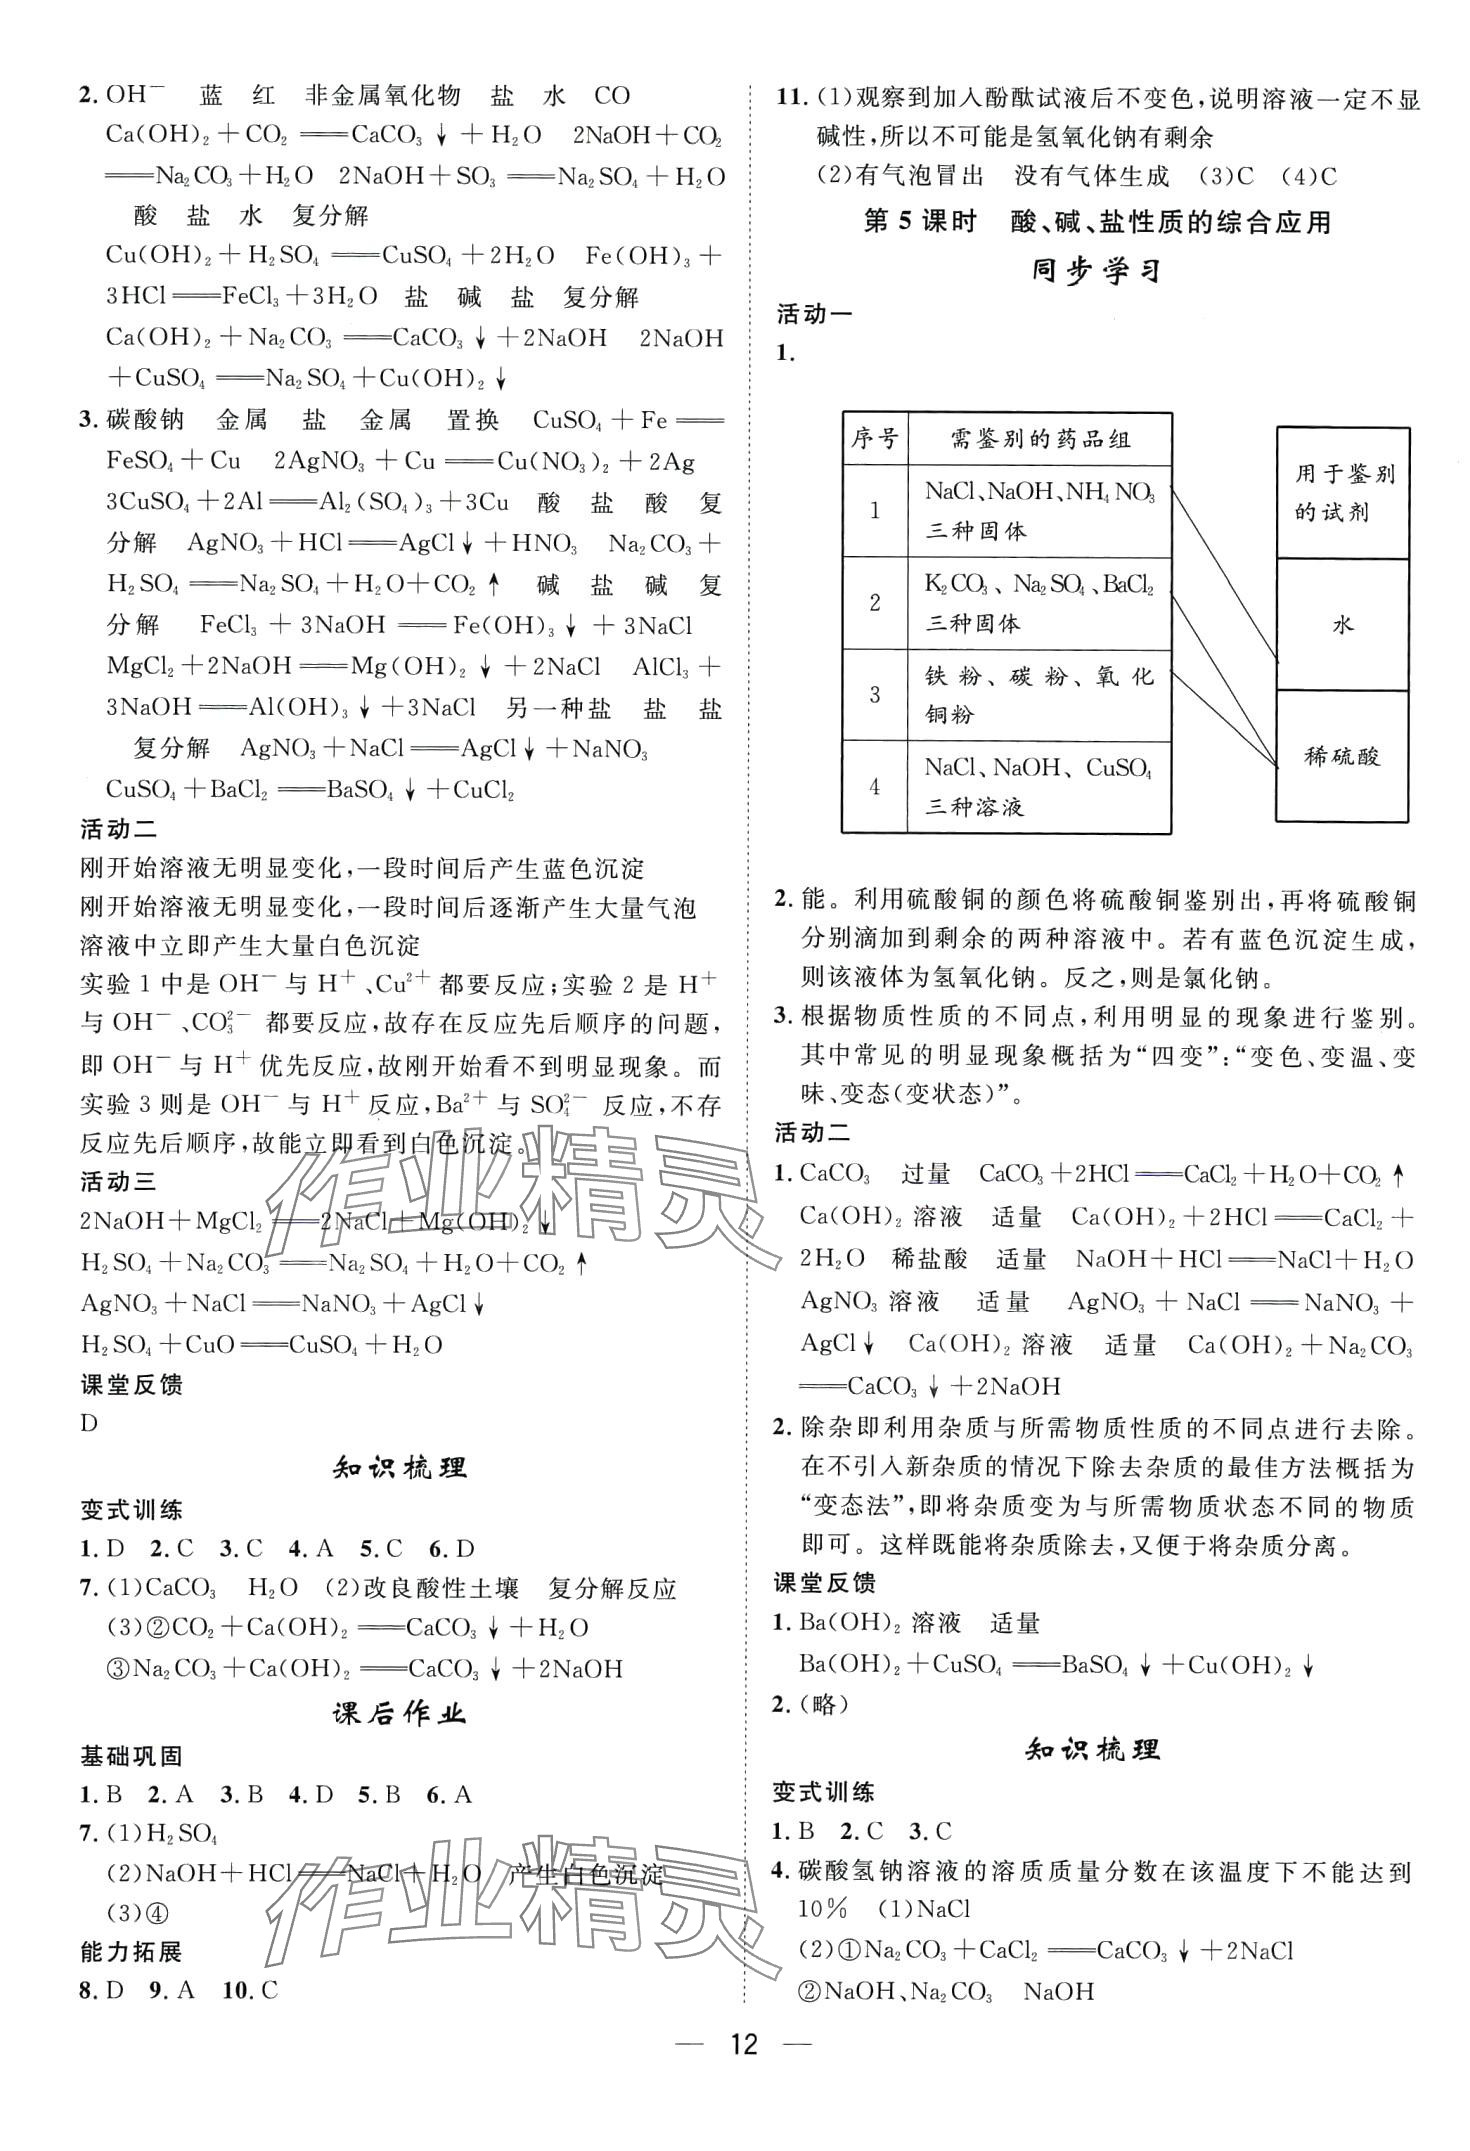 2. OH⁻ 蓝 红 非金属氧化物 盐 水 CO
Ca(OH)₂+CO₂══CaCO₃↓+H₂O 2NaOH+CO₂
══Na₂CO₃+H₂O 2NaOH+SO₃══Na₂SO₄+H₂O
酸 盐 水 复分解
Cu(OH)₂+H₂SO₄══CuSO₄+2H₂O Fe(OH)₃+
3HCl══FeCl₃+3H₂O 盐 碱 盐 复分解
Ca(OH)₂+Na₂CO₃══CaCO₃↓+2NaOH 2NaOH
+CuSO₄══Na₂SO₄+Cu(OH)₂↓
3. 碳酸钠 金属 盐 金属 置换 CuSO₄+Fe══
FeSO₄+Cu 2AgNO₃+Cu══Cu(NO₃)₂+2Ag
3CuSO₄+2Al══Al₂(SO₄)₃+3Cu 酸 盐 酸 复
分解 AgNO₃+HCl══AgCl↓+HNO₃ Na₂CO₃+
H₂SO₄══Na₂SO₄+H₂O+CO₂↑ 碱 盐 碱 复
分解 FeCl₃+3NaOH══Fe(OH)₃↓+3NaCl
MgCl₂+2NaOH══Mg(OH)₂↓+2NaCl AlCl₃+
3NaOH══Al(OH)₃↓+3NaCl 另一种盐 盐 盐
复分解 AgNO₃+NaCl══AgCl↓+NaNO₃
CuSO₄+BaCl₂══BaSO₄↓+CuCl₂
活动二
刚开始溶液无明显变化,一段时间后产生蓝色沉淀
刚开始溶液无明显变化,一段时间后逐渐产生大量气泡
溶液中立即产生大量白色沉淀
实验1中是OH⁻与H⁺、Cu²⁺都要反应;实验2是H⁺
与OH⁻、CO₃²⁻都要反应,故存在反应先后顺序的问题,
即OH⁻与H⁺优先反应,故刚开始看不到明显现象。而
实验3则是OH⁻与H⁺反应,Ba²⁺与SO₄²⁻反应,不存
反应先后顺序,故能立即看到白色沉淀。
活动三
2NaOH+MgCl₂══2NaCl+Mg(OH)₂↓
H₂SO₄+Na₂CO₃══Na₂SO₄+H₂O+CO₂↑
AgNO₃+NaCl══NaNO₃+AgCl↓
H₂SO₄+CuO══CuSO₄+H₂O
课堂反馈
D
知识梳理
变式训练
1. D 2. C 3. C 4. A 5. C 6. D
7. (1)CaCO₃ H₂O (2)改良酸性土壤 复分解反应
(3)②CO₂+Ca(OH)₂══CaCO₃↓+H₂O
③Na₂CO₃+Ca(OH)₂══CaCO₃↓+2NaOH
课后作业
基础巩固
1. B 2. A 3. B 4. D 5. B 6. A
7. (1)H₂SO₄
(2)NaOH+HCl══NaCl+H₂O 产生白色沉淀
(3)④
能力拓展
8. D 9. A 10. C
11. (1)观察到加入酚酞试液后不变色,说明溶液一定不显
碱性,所以不可能是氢氧化钠有剩余
(2)有气泡冒出 没有气体生成 (3)C (4)C
第5课时 酸、碱、盐性质的综合应用
同步学习
活动一
1.
序号 需鉴别的药品组
1 NaCl、NaOH、NH₄NO₃
三种固体
2 K₂CO₃、Na₂SO₄、BaCl₂
三种固体
3 铁粉、碳粉、氧化
铜粉
4 NaCl、NaOH、CuSO₄
三种溶液
用于鉴别
的试剂
水
稀硫酸
2. 能。利用硫酸铜的颜色将硫酸铜鉴别出,再将硫酸铜
分别滴加到剩余的两种溶液中。若有蓝色沉淀生成,
则该液体为氢氧化钠。反之,则是氯化钠。
3. 根据物质性质的不同点,利用明显的现象进行鉴别。
其中常见的明显现象概括为“四变”:“变色、变温、变
味、变态(变状态)”。
活动二
1. CaCO₃ 过量 CaCO₃+2HCl══CaCl₂+H₂O+CO₂↑
Ca(OH)₂溶液 适量 Ca(OH)₂+2HCl══CaCl₂+
2H₂O 稀盐酸 适量 NaOH+HCl══NaCl+H₂O
AgNO₃溶液 适量 AgNO₃+NaCl══NaNO₃+
AgCl↓ Ca(OH)₂溶液 适量 Ca(OH)₂+Na₂CO₃
══CaCO₃↓+2NaOH
2. 除杂即利用杂质与所需物质性质的不同点进行去除。
在不引入新杂质的情况下除去杂质的最佳方法概括为
“变态法”,即将杂质变为与所需物质状态不同的物质
即可。这样既能将杂质除去,又便于将杂质分离。
课堂反馈
1. Ba(OH)₂溶液 适量
Ba(OH)₂+CuSO₄══BaSO₄↓+Cu(OH)₂↓
2. (略)
知识梳理
变式训练
1. B 2. C 3. C
4. 碳酸氢钠溶液的溶质质量分数在该温度下不能达到
10% (1)NaCl
(2)①Na₂CO₃+CaCl₂══CaCO₃↓+2NaCl
②NaOH、Na₂CO₃ NaOH
— 12 —
作业精灵
作业精灵